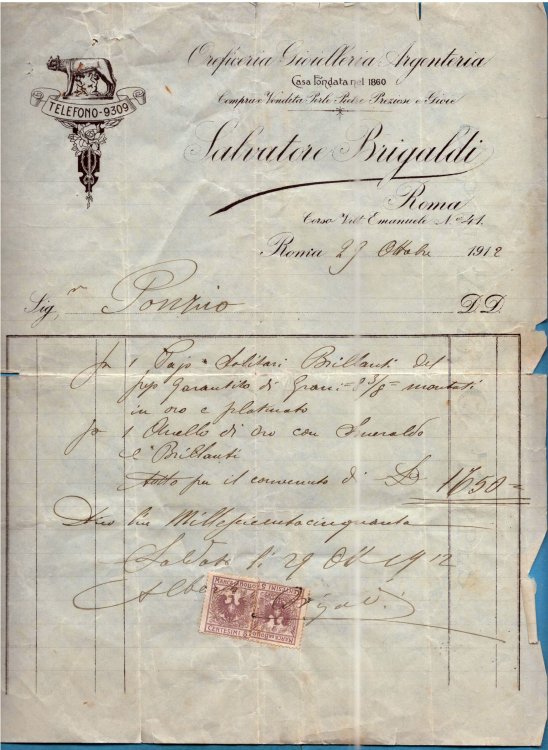 Oreficeria Gioielleria Argenteria
Casa Fondata nel 1860
Compra e Vendita Perle Pietre Preziose e Gioie
TELEFONO-9309
Salvatore Brigaldi
Roma
Corso Vitt. Emanuele N.° 41.
Roma 29 Ottobre 1912
Sig. Ponzio D.D.
1 Pajo Solitari Brillanti del
garantito di Grani montati
in oro e platinato
1 Anello di oro con Smeraldo
e Brillanti
Tutto per il convenuto di 1650=
Dico Lire Millesicentocinquanta
Saldato li 29 Ott 1912
Alberto Brigaldi
MARCA DA BOLLO
CENTESIMI 5